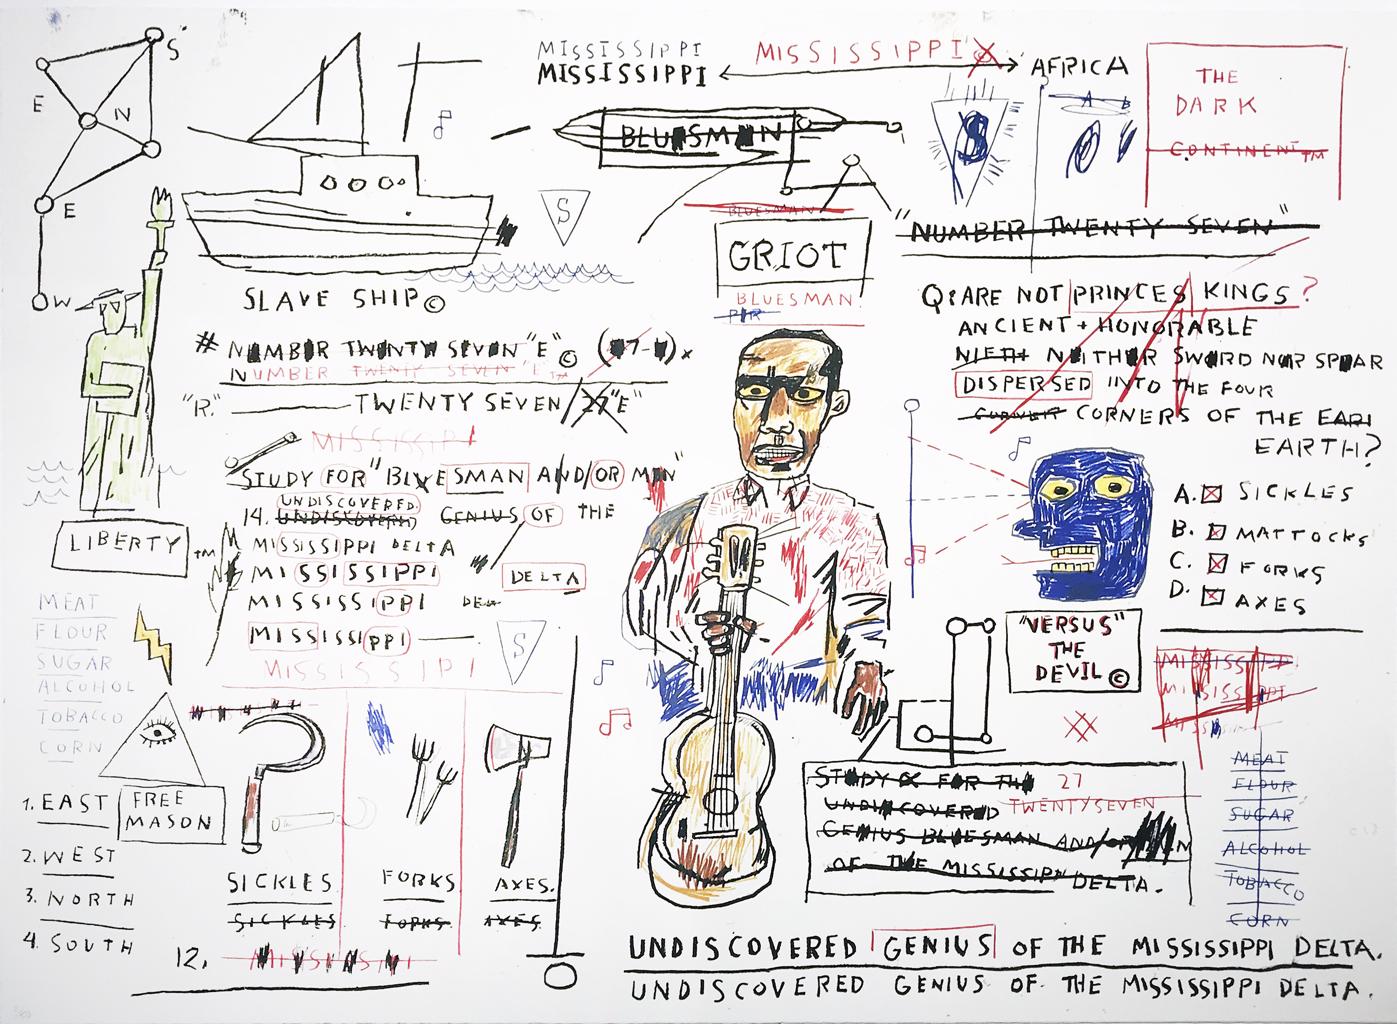 S
E
N
E
W
MISSISSIPPI
MISSISSIPPI
MISSISSIPPI
AFRICA
THE
DARK
CONTINENT™
BLUESMAN
S
A B
S
"NUMBER TWENTY SEVEN"
BLUESMAN
GRIOT
BLUESMAN
SLAVE SHIP©
# NUMBER TWENTY SEVEN "E" ©
NUMBER TWENTY SEVEN "E"™
"R." TWENTY SEVEN/27 "E"
MISSISSIPPI
STUDY FOR "BLUESMAN AND/OR MEN"
UNDISCOVERED
14. UNDISCOVERED GENIUS OF THE
MISSISSIPPI DELTA
MISSISSIPPI
DELTA
MISSISSIPPI
MISSISSIPPI
MISSISSIPPI
S
LIBERTY™
Q: ARE NOT PRINCES KINGS?
ANCIENT + HONORABLE
NIETH NEITHER SWORD NOR SPEAR
DISPERSED INTO THE FOUR
CORNERS OF THE EARI
EARTH?
A. SICKLES
B. MATTOCKS
C. FORKS
D. AXES
"VERSUS"
THE
DEVIL ©
MEAT
FLOUR
SUGAR
ALCOHOL
TOBACCO
CORN
FREE
MASON
1. EAST
2. WEST
3. NORTH
4. SOUTH
SICKLES
SICKLES
FORKS
FORKS
AXES.
AXES.
12. MISSISSIPPI
MISSISSIPPI
MISSISSIPPI
STUDY FOR THE 27
UNDISCOVERED TWENTYSEVEN
GENIUS BLUESMAN AND/OR
OF THE MISSISSIPPI DELTA.
MEAT
FLOUR
SUGAR
ALCOHOL
TOBACCO
CORN
UNDISCOVERED GENIUS OF THE MISSISSIPPI DELTA.
UNDISCOVERED GENIUS OF THE MISSISSIPPI DELTA.